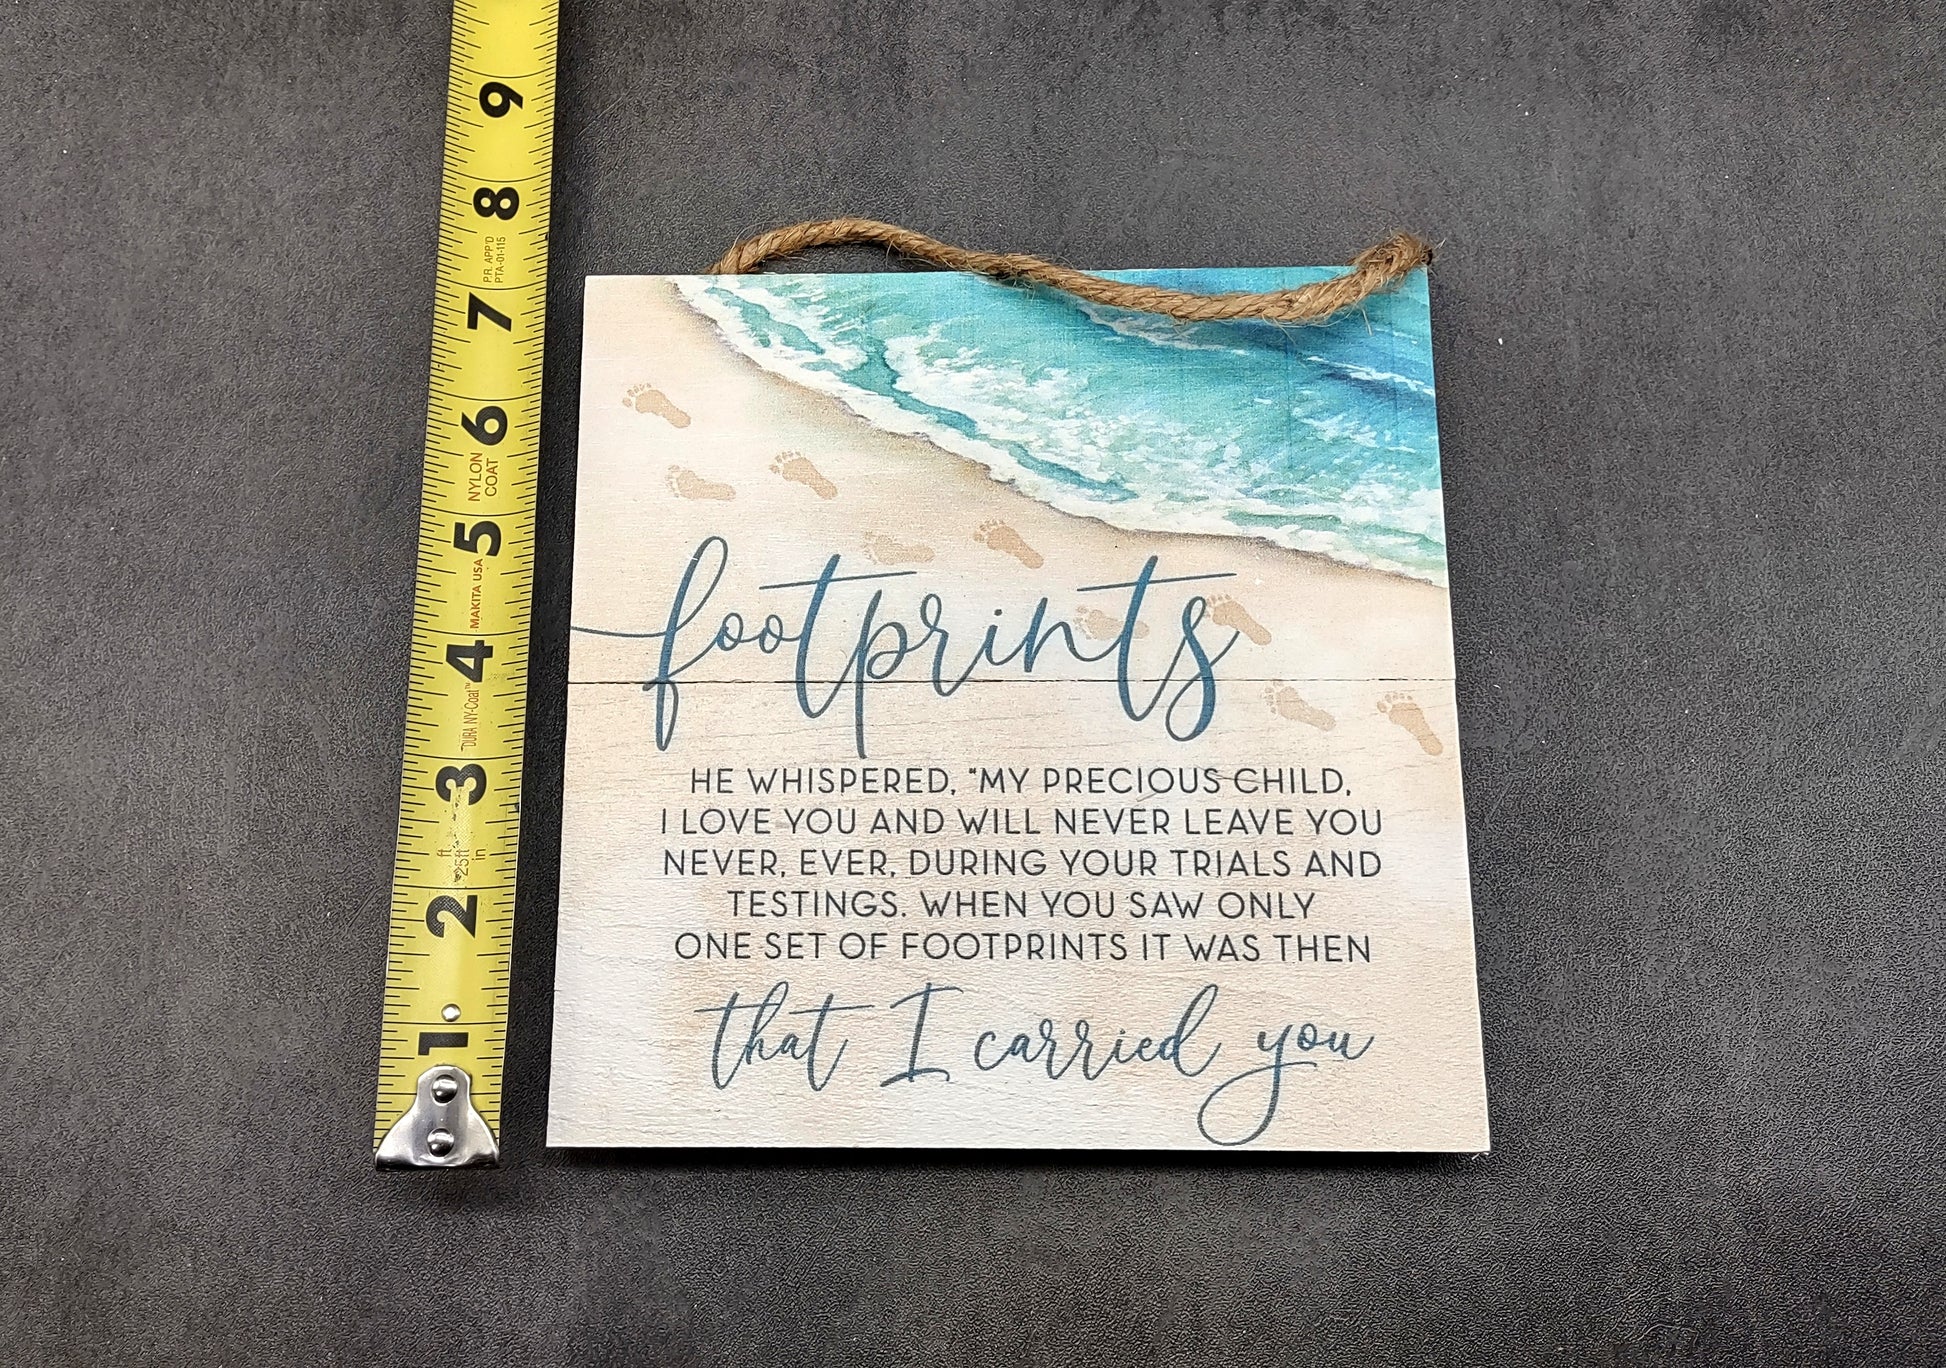 footprints
HE WHISPERED, "MY PRECIOUS CHILD,
I LOVE YOU AND WILL NEVER LEAVE YOU
NEVER, EVER, DURING YOUR TRIALS AND
TESTINGS. WHEN YOU SAW ONLY
ONE SET OF FOOTPRINTS IT WAS THEN
that I carried you
9
8
P.R. APP'D
PTA-01-115
7
6
NYLON
COAT
5
MAKITA USA
4
DURA NY-Coat™
3
ft
25ft
in
2
1